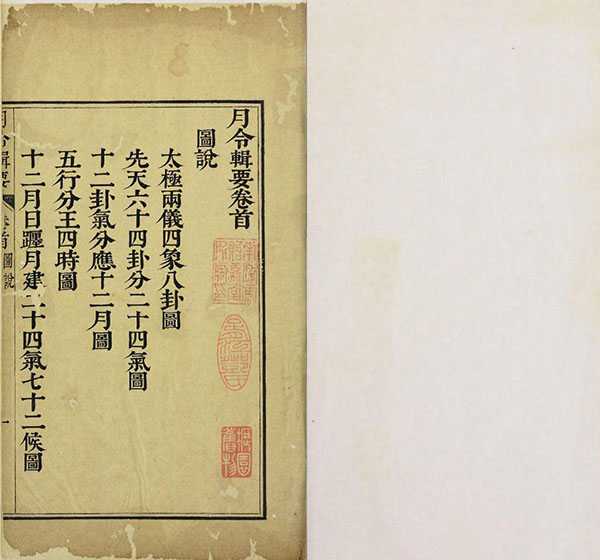 月令輯要卷首
圖說
太極兩儀四象八卦圖
先天六十四卦分二十四氣圖
十二卦氣分應十二月圖
五行分王四時圖
十二月日躔月建二十四氣七十二候圖
月令輯要 卷首 圖說 一